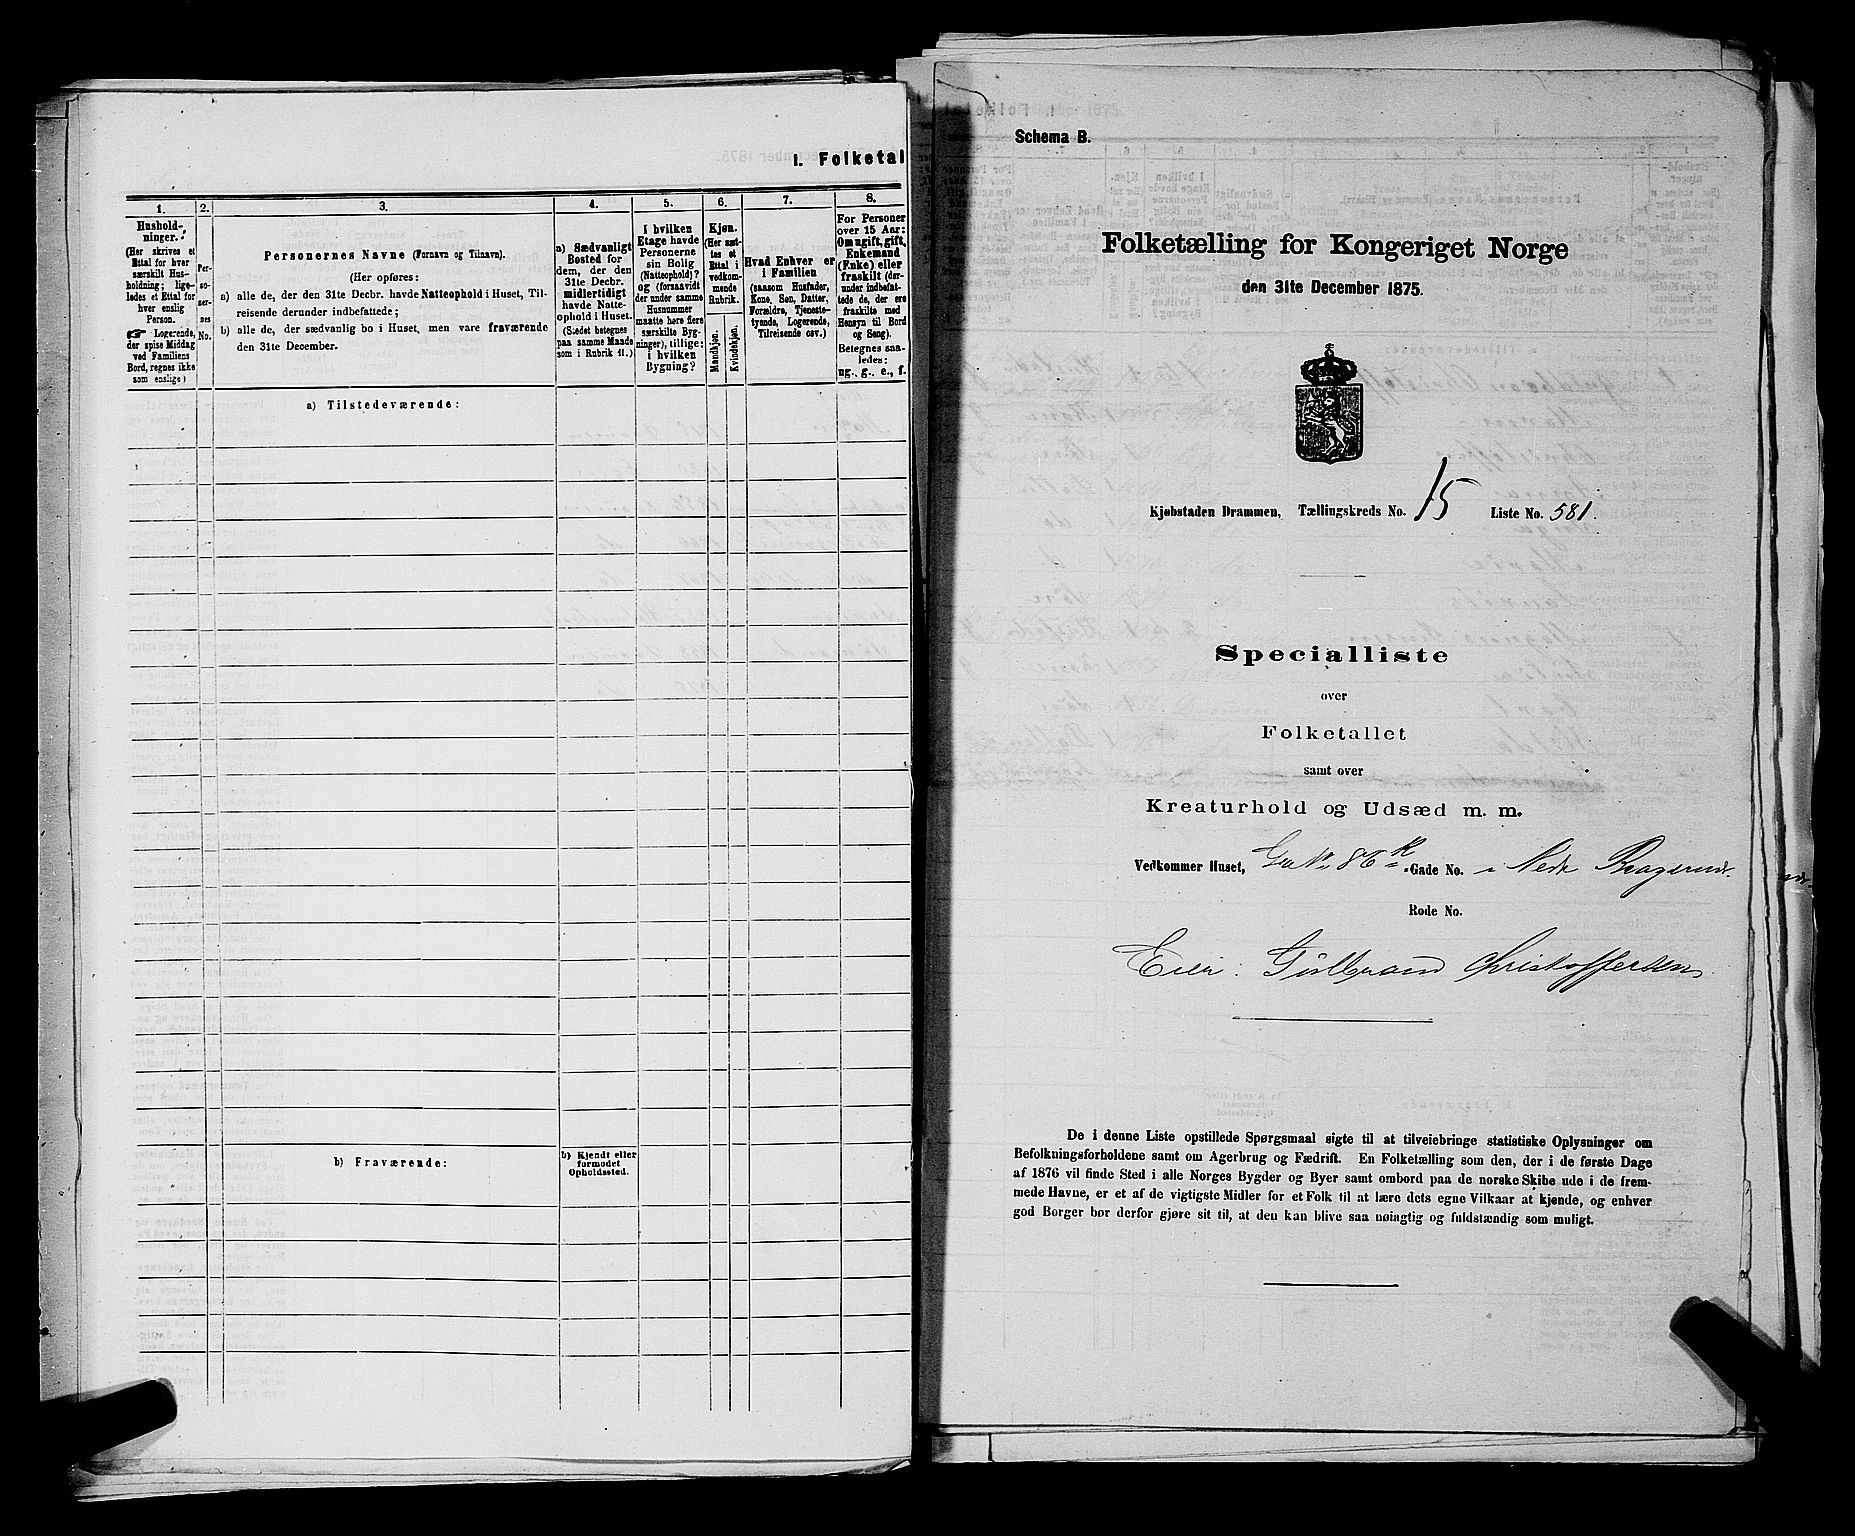 1. Folketal
1.
Hushold-
ninger.
(Her skrives et
Ettal for hver
særskilt Hus-
holdning; lige-
ledes et Ettal for
hver enslig
Person.
☞ Logerende,
der spise Middag
ved Familiens
Bord, regnes ikke
som enslige)
2.
Per-
so-
ner-
nes
No.
3.
Personernes Navne (Fornavn og Tilnavn).
(Her opføres:
a) alle de, der den 31te Decbr. havde Natteophold i Huset, Til-
reisende derunder indbefattede;
b) alle de, der sædvanlig bo i Huset, men vare fraværende
den 31te December.
4.
a) Sædvanligt
Bosted for
dem, der den
31te Decbr.
midlertidigt
havde Natte-
ophold i Huset.
(Stedet betegnes
paa samme Maade
som i Rubrik 11.)
5.
I hvilken
Etage havde
Personerne
sin Bolig
(Natteophold)?
og (forsaavidt
der under samme
Husnummer
maatte høre flere
særskilte Byg-
ninger), tillige:
i hvilken
Bygning?
6.
Kjøn.
(Her sæt-
tes et
Ettal i
vedkom-
mende
Rubrik.
Mandkjøn.
Kvindekjøn.
7.
Hvad Enhver er
i Familien
(saasom Husfader,
Kone, Søn, Datter,
Forældre, Tjeneste-
tyende, Logerende,
Tilreisende osv.)
8.
For Personer
over 15 Aar:
Om ugift, gift,
Enkemand
(Enke) eller
fraskilt (der-
under indbefat-
tede de, der ere
fraskilte med
Hensyn til Bord
og Seng).
Betegnes saa-
ledes:
ug., g., e., f.
a) Tilstedeværende:
b) Fraværende:
b) Kjendt eller
formodet
Opholdssted.
Schema B.
Folketælling for Kongeriget Norge
den 31te December 1875.
Kjøbstaden Drammen, Tællingskreds No. 15 Liste No. 581.
Specialliste
over
Folketallet
samt over
Kreaturhold og Udsæd m. m.
Vedkommer Huset, 86 Gade No. i Nedr Bragernes
Rode No.
Eier: Gulbrand Christoffersen
De i denne Liste opstillede Spørgsmaal sigte til at tilveiebringe statistiske Oplysninger om
Befolkningsforholdene samt om Agerbrug og Fædrift. En Folketælling som den, der i de første Dage
af 1876 vil finde Sted i alle Norges Bygder og Byer samt ombord paa de norske Skibe ude i de frem-
mede Havne, er et af de vigtigste Midler for et Folk til at lære dets egne Vilkaar at kjende, og enhver
god Borger bør derfor gjøre sit til, at den kan blive saa nøiagtig og fuldstændig som muligt.